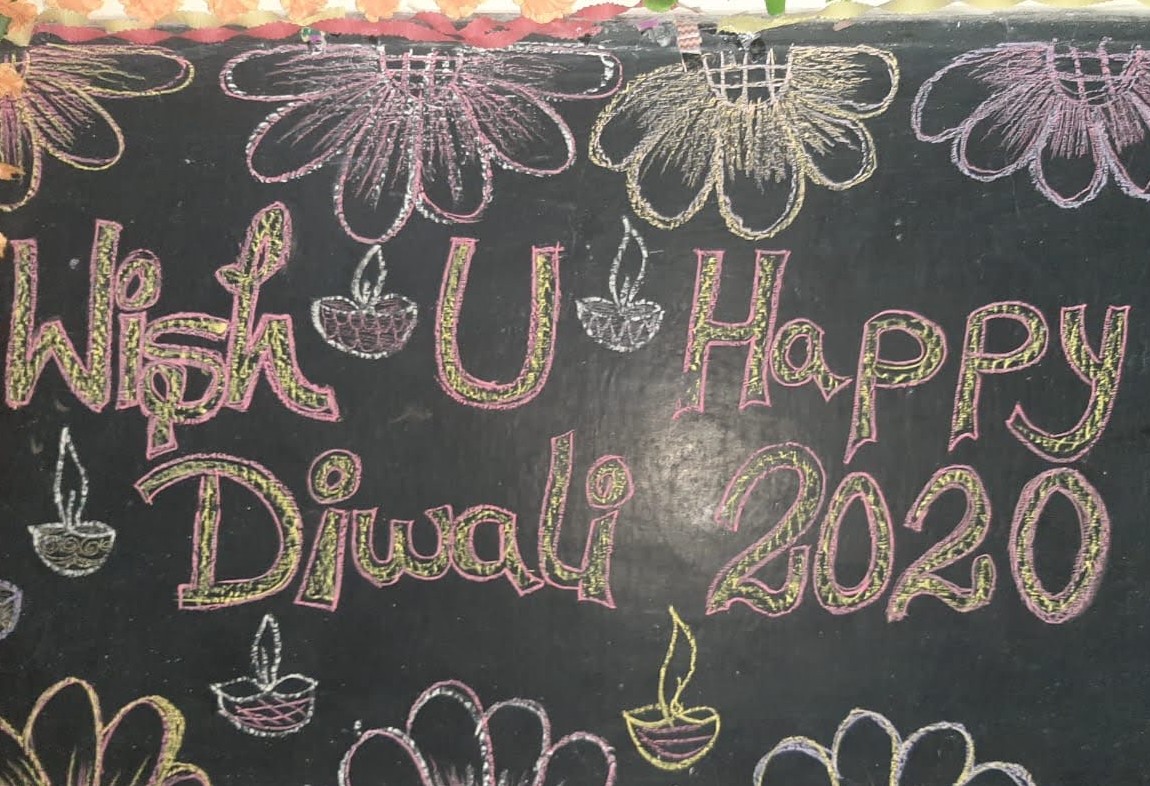 Wish U Happy
Diwali 2020